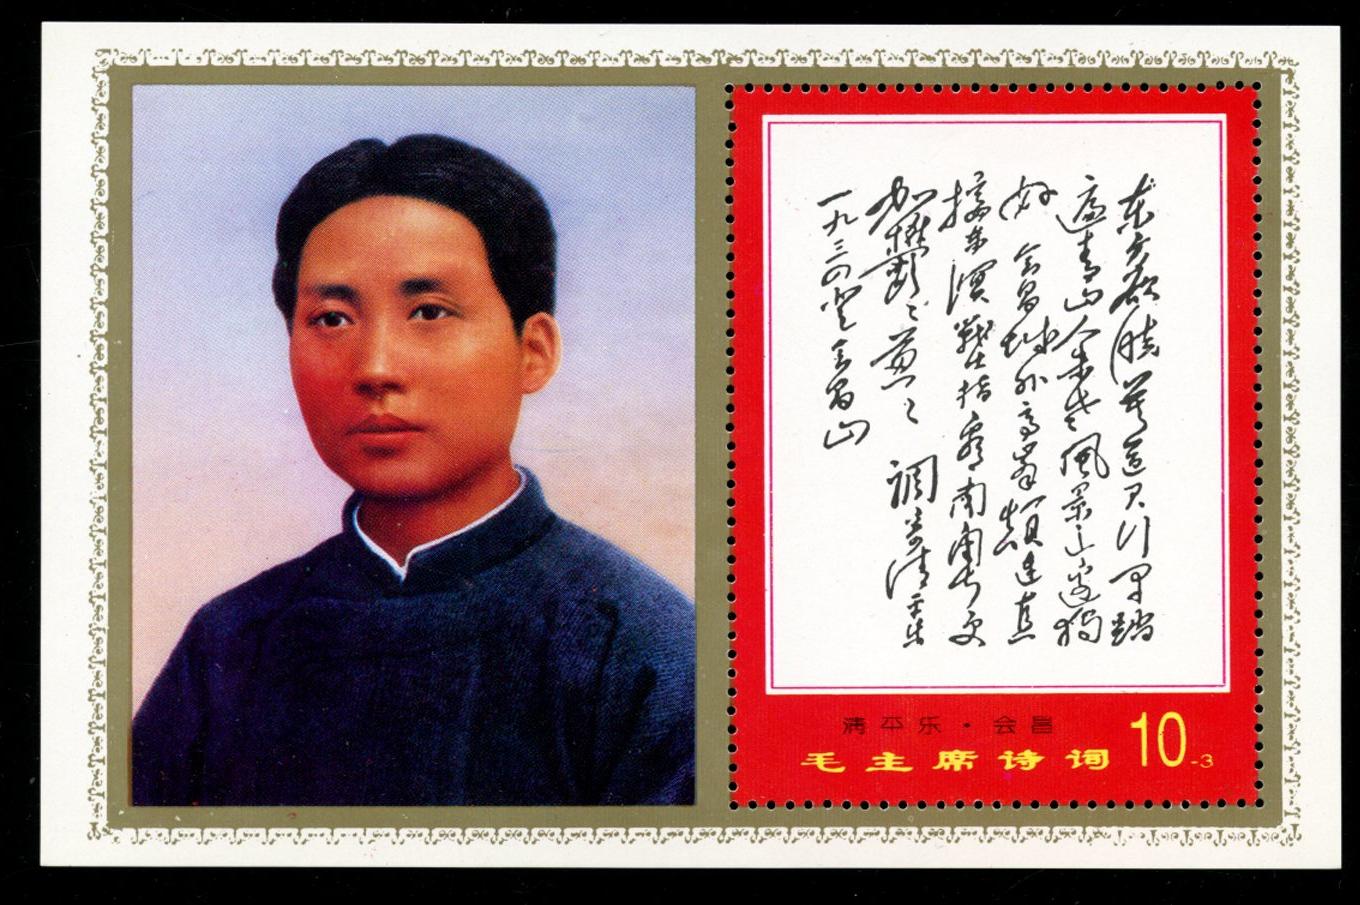 东方欲晓莫道君行早踏
遍青山人未老風景这边独
好会昌城外高峯顛连直
接东溟戰士指看南粤更
加鬱〻葱〻調寄清平乐
一九三四登会昌山
清平乐·会昌
毛主席诗词
10-3